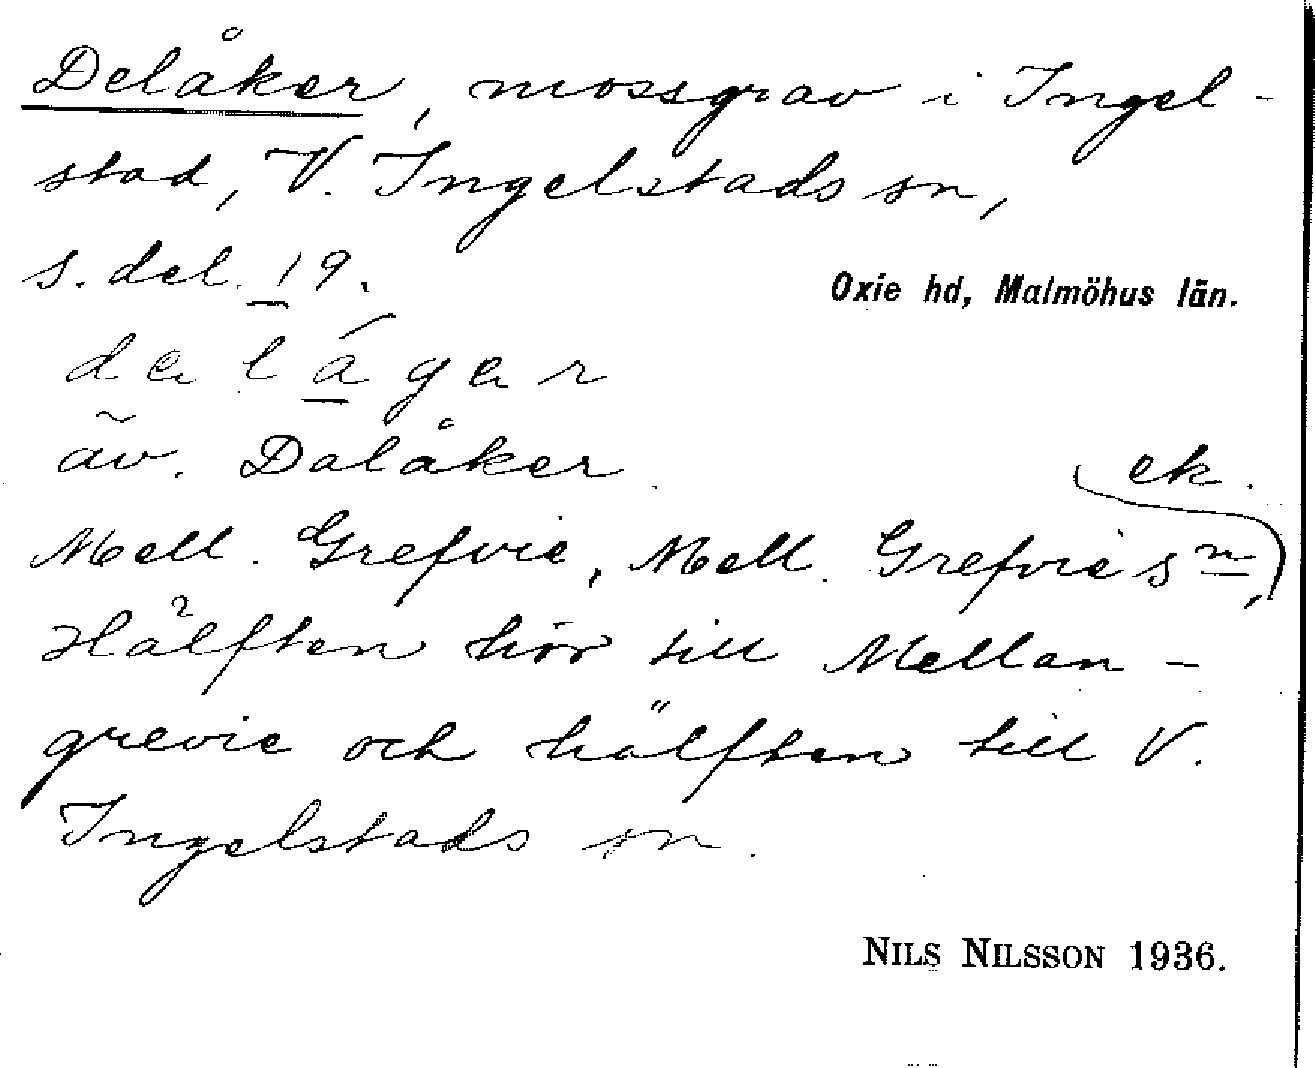 Delåker, mossgrav i Ingel-
stad, V. Ingelstads sn,
s. del. 19.
Oxie hd, Malmöhus län.
äv. Dalåker.
ek.
Mell. Grefvie, Mell. Grefvie sn,
Hälften hör till Mellan-
grevie och hälften till V.
Ingelstads sn.
NILS NILSSON 1936.